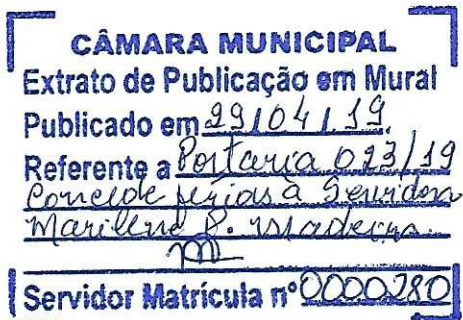 CÂMARA MUNICIPAL
Extrato de Publicação em Mural
Publicado em 29/04/19.
Referente a Portaria 023/19
Concede férias à Servidora
Marilene P. Madeira
Servidor Matrícula nº 0000280